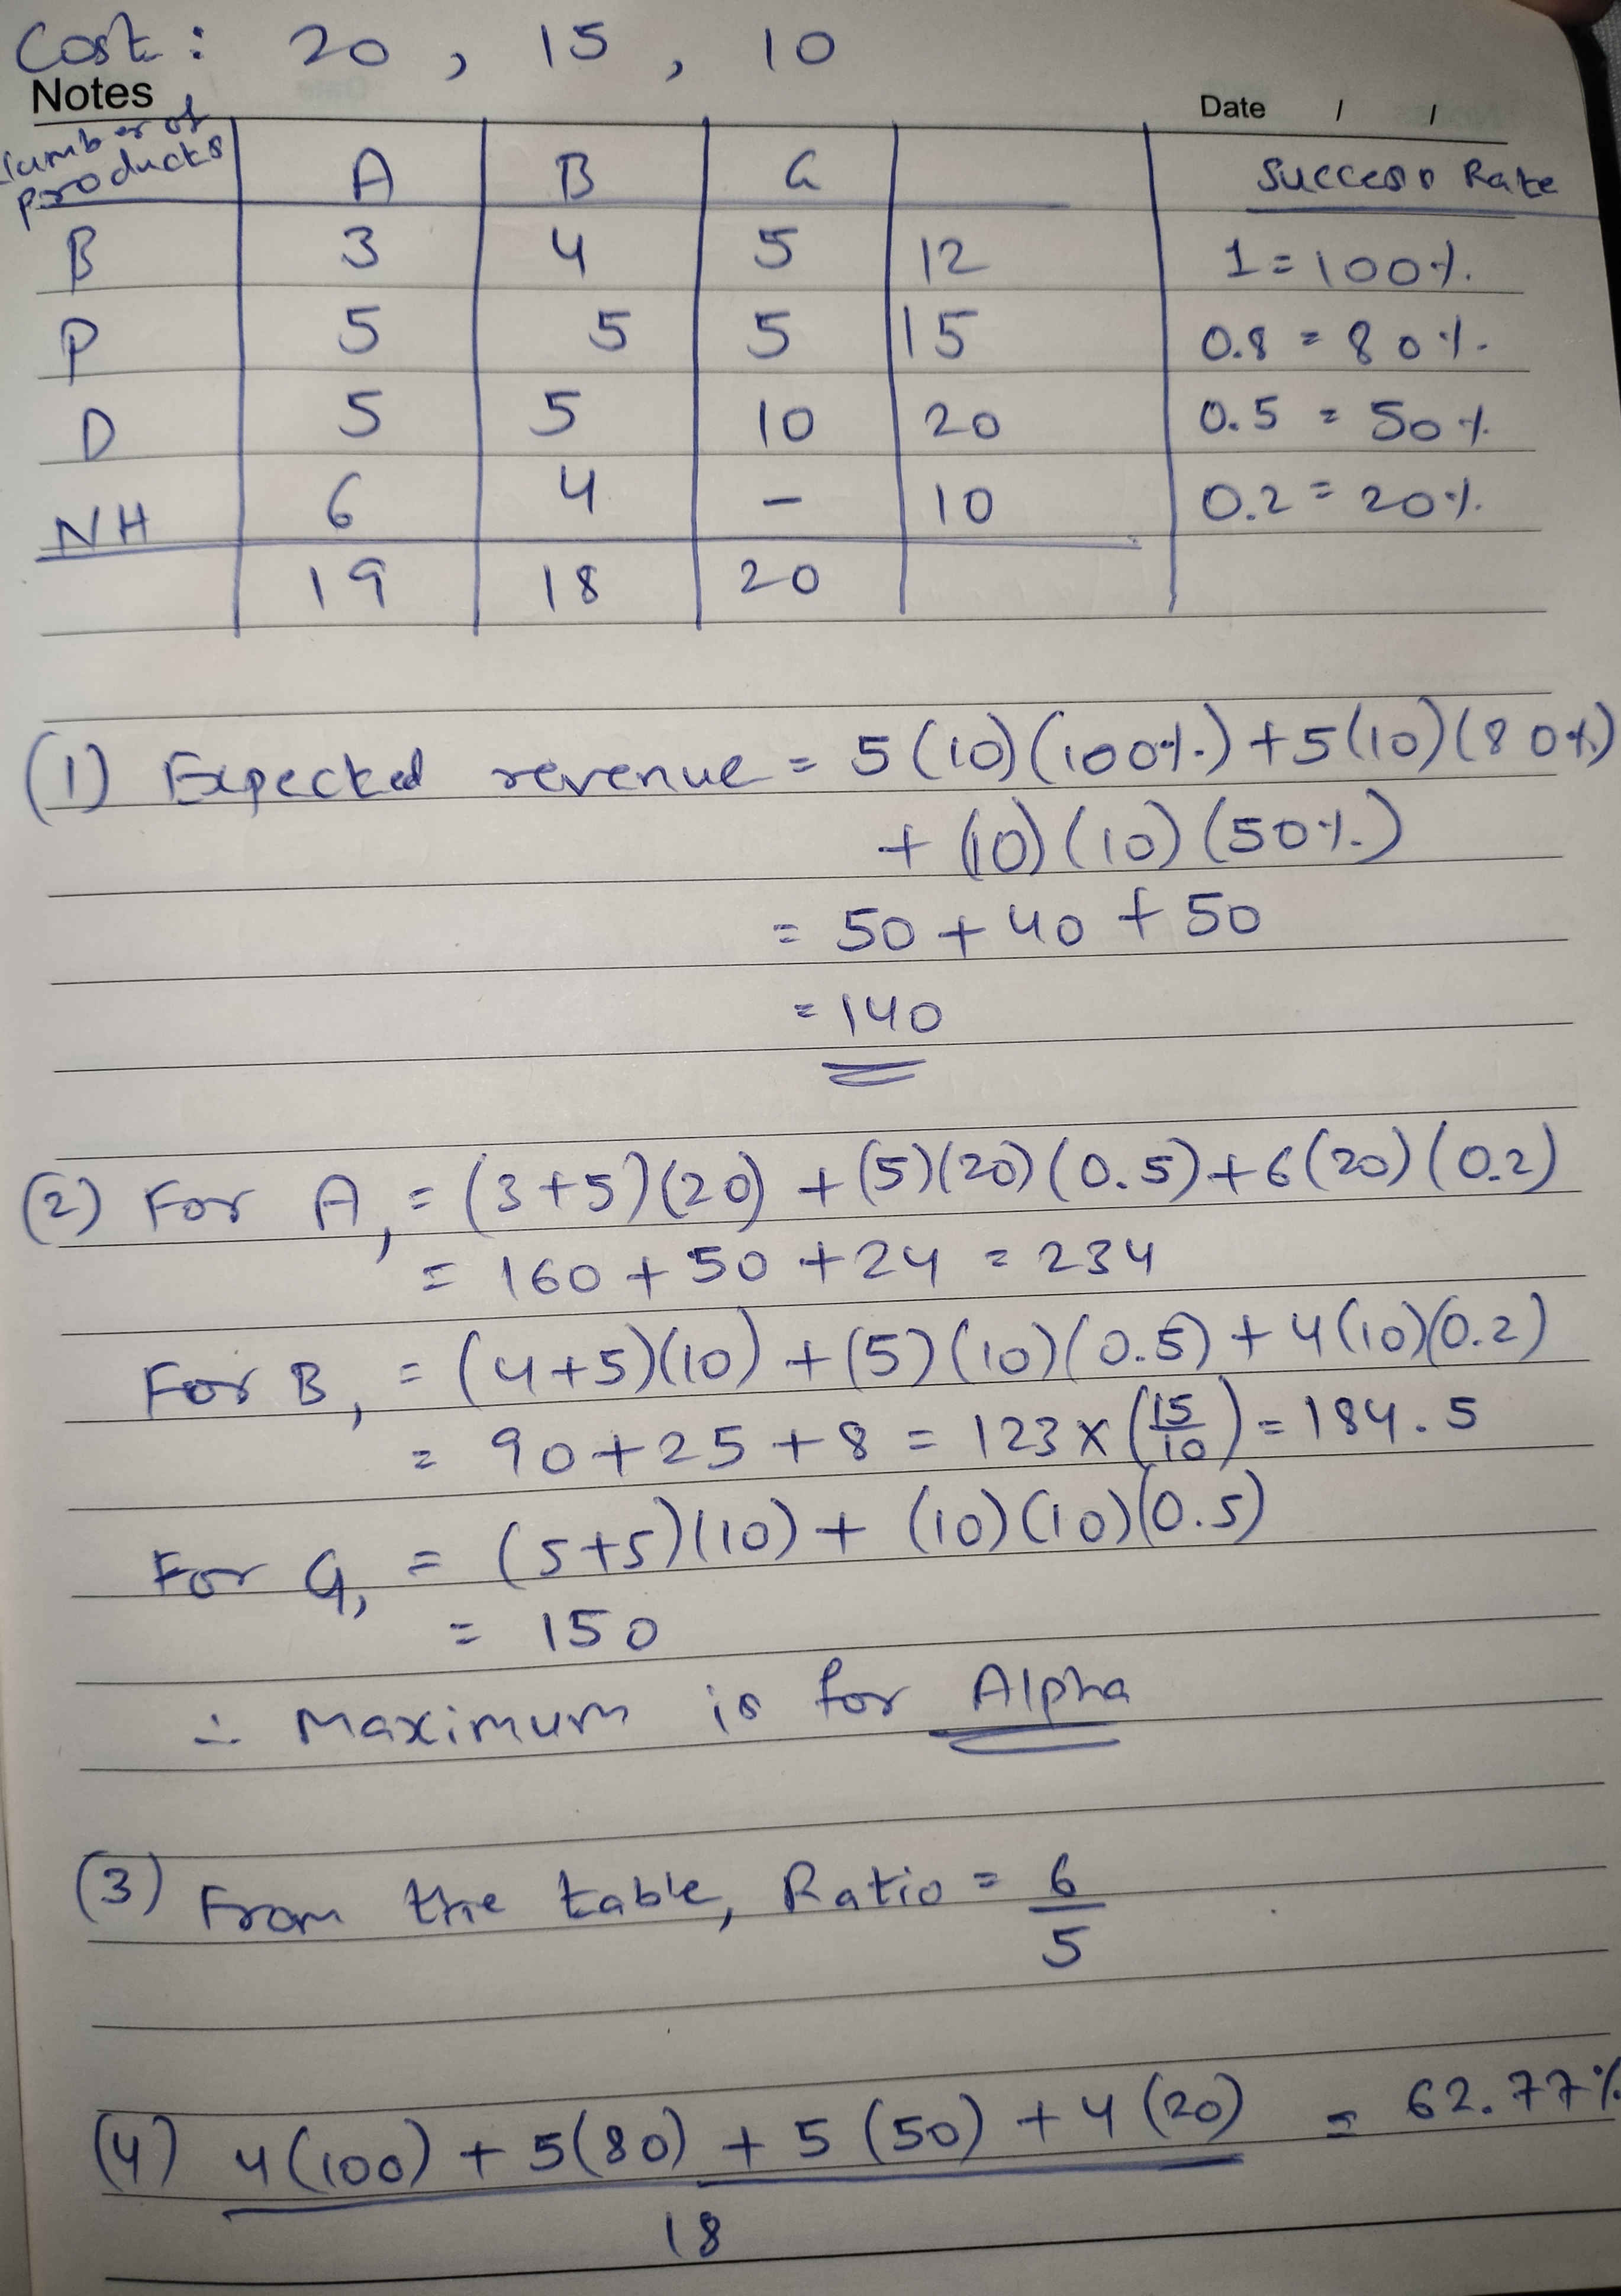 Cost : 20 , 15 , 10
Notes
Date / /
number of products A B G Success Rate
B 3 4 5 12 1 = 100%
P 5 5 5 15 0.8 = 80%
D 5 5 10 20 0.5 = 50%
NH 6 4 - 10 0.2 = 20%
19 18 20
(1) Expected revenue = 5(10)(100%) + 5(10)(80%)
+ (10)(10)(50%)
= 50 + 40 + 50
= 140
(2) For A, = (3+5)(20) + (5)(20)(0.5) + 6(20)(0.2)
= 160 + 50 + 24 = 234
For B, = (4+5)(10) + (5)(10)(0.5) + 4(10)(0.2)
= 90 + 25 + 8 = 123 x (15/10) = 184.5
For G, = (5+5)(10) + (10)(10)(0.5)
= 150
∴ Maximum is for Alpha
(3) From the table, Ratio = 6/5
(4) 4(100) + 5(80) + 5(50) + 4(20) = 62.77%
18